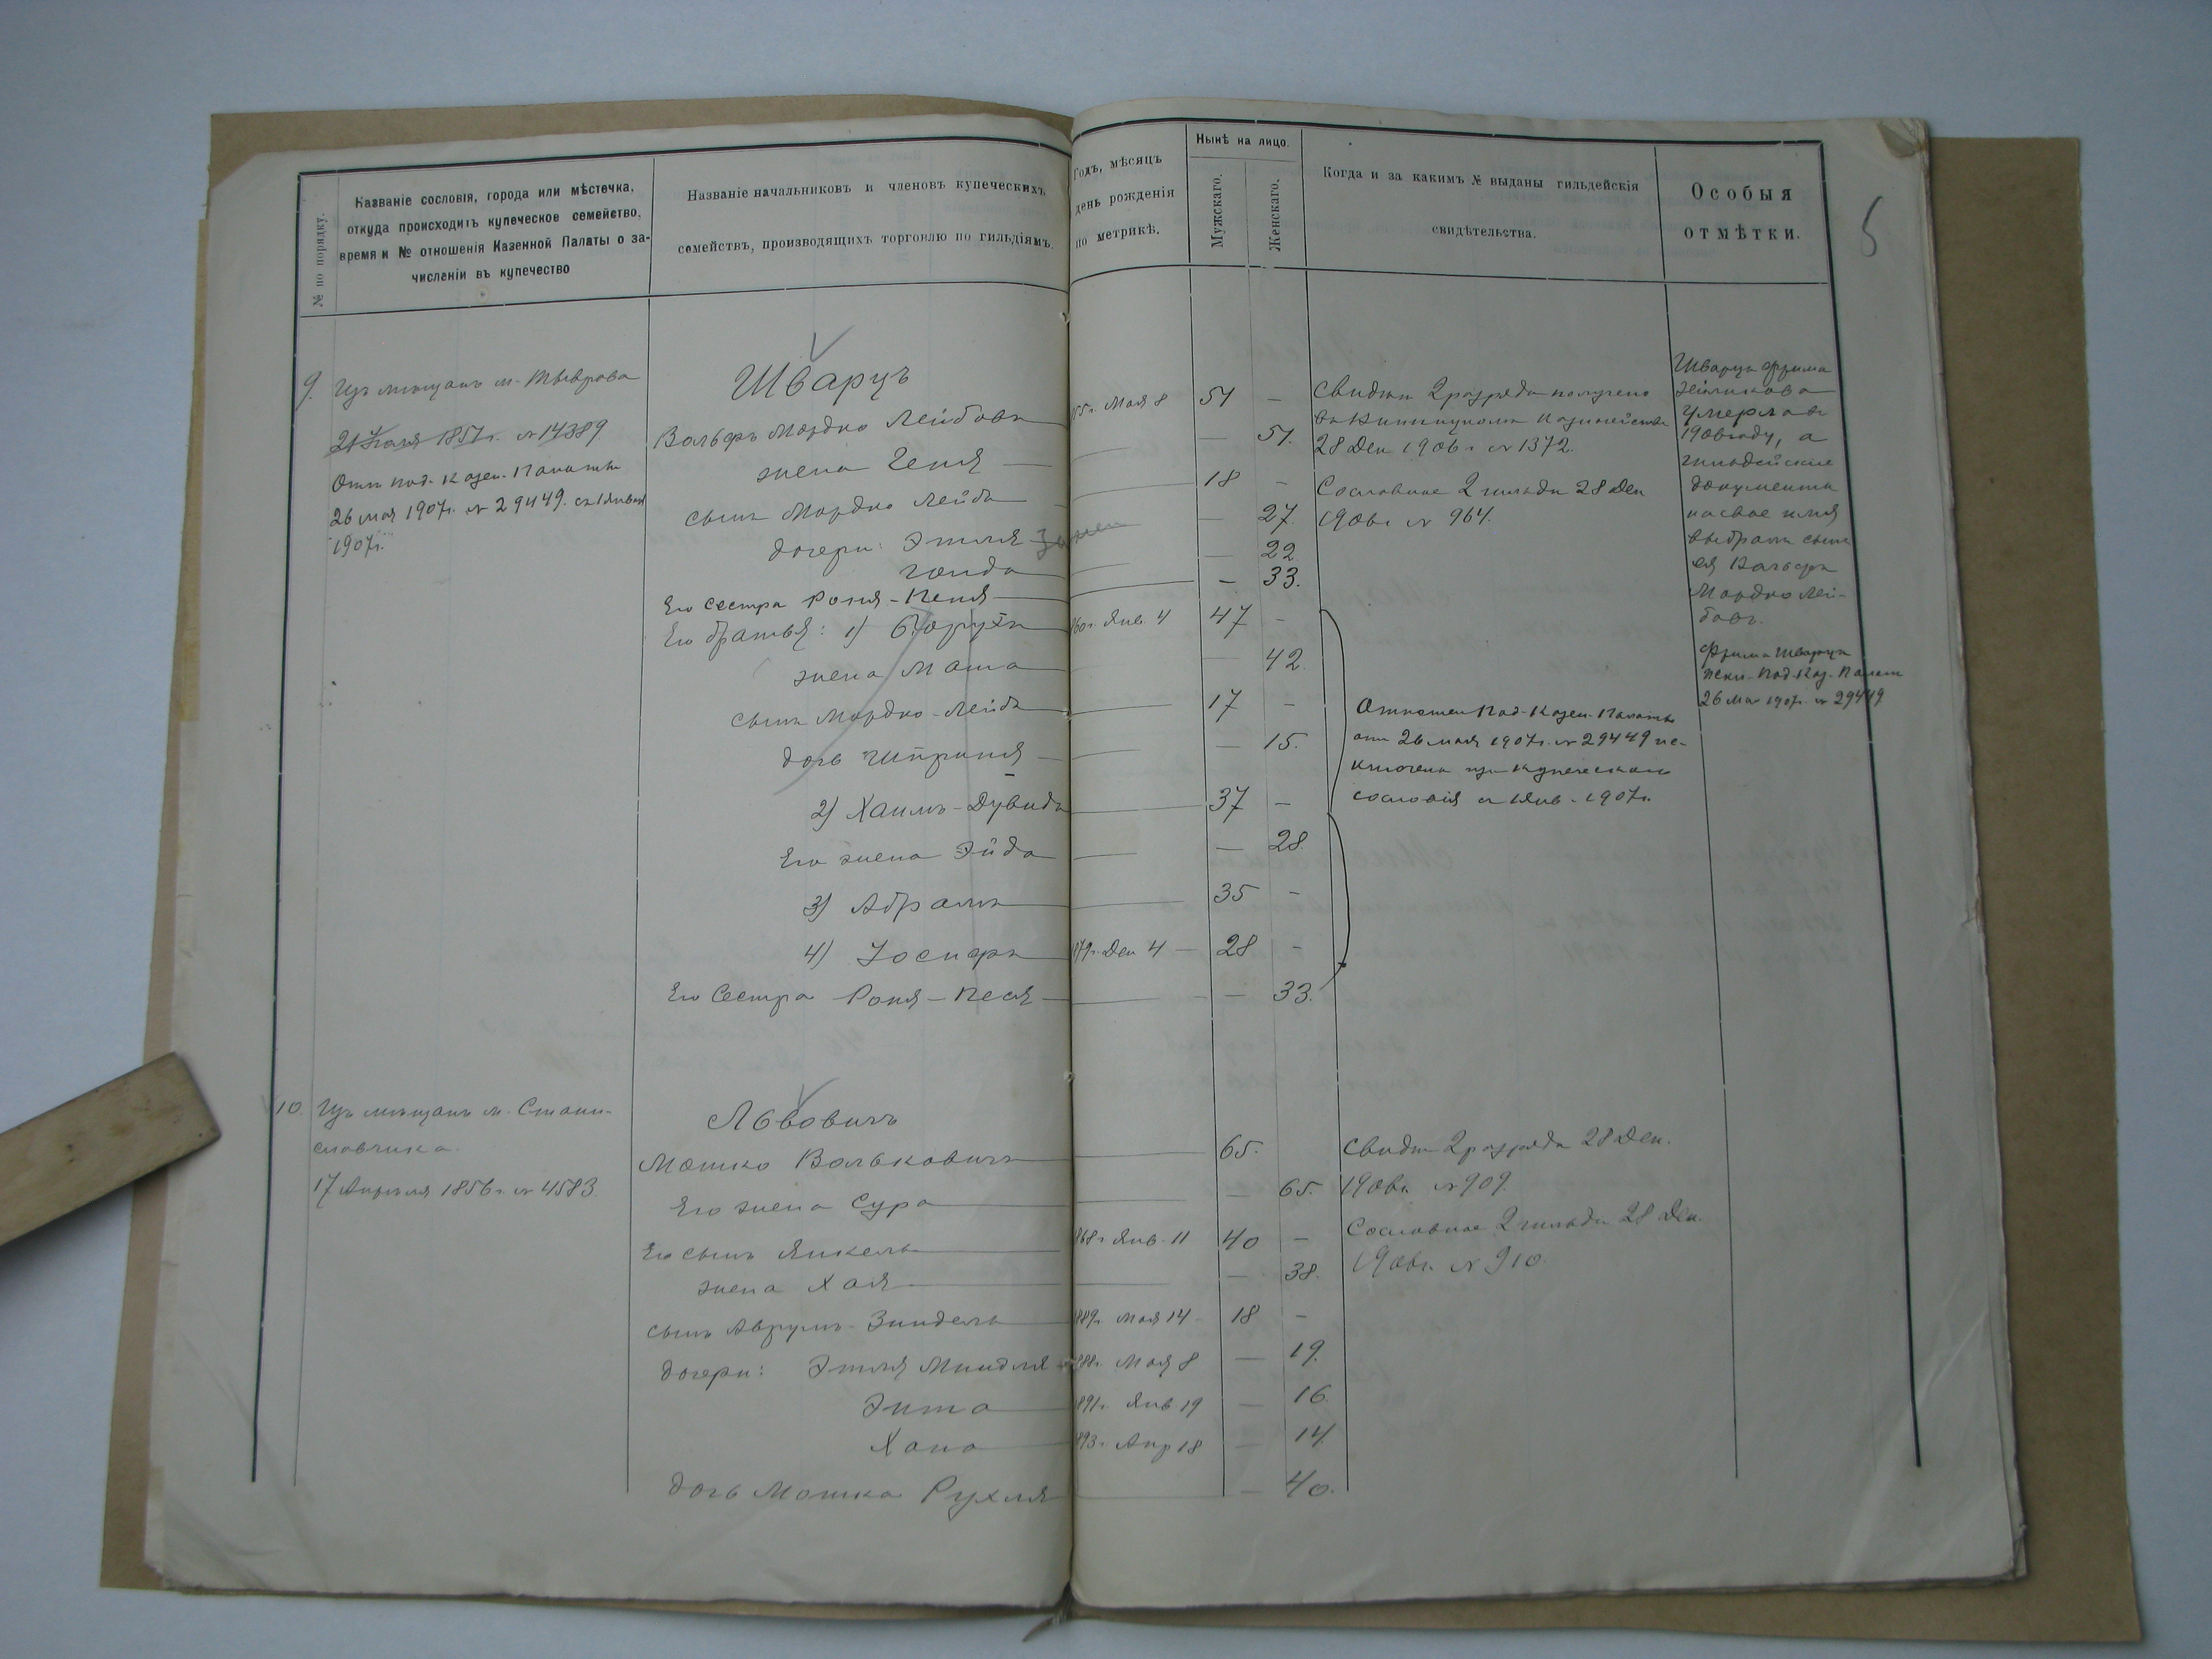 5
№ по порядку.
Названіе сословія, города или мѣстечка,
откуда происходитъ купеческое семейство,
время и № отношенія Казенной Палаты о за-
численіи въ купечество
Названіе начальниковъ и членовъ купеческихъ
семействъ, производящихъ торговлю по гильдіямъ.
Годъ, мѣсяцъ
день рожденія
по метрикѣ.
Нынѣ на лицо.
Мужскаго.
Женскаго.
Когда и за какимъ № выданы гильдейскія
свидѣтельства.
Особыя
отмѣтки.
9.
Изъ мѣщанъ м. Тыврова
1857г. № 14389
Отн. Под. Казен. Палаты
26 мая 1907г. № 29449. съ 1 Января
1907г.
Шварцъ
Вольфъ Мордко Лейбовъ
жена Геня
сынъ Мордко Лейба
дочери: Этля
Голда
Его сестра Роня-Песя
Его братья: 1) Борухъ
жена Маша
сынъ Мордко-Лейба
дочь Шприня
2) Хаимъ-Дувидъ
Его жена Эйда
3) Абрамъ
4) Іосифъ
Его Сестра Роня-Песя
Мая 8
51 -
- 51.
18 -
- 27.
- 22
- 33.
860г. Янв. 4 47 -
- 42.
17 -
- 15.
37 -
- 28.
35 -
879г. Дек 4 28 -
- 33.
Свидѣт 2 разряда получено
въ Винницкомъ Казначействѣ
28 Дек 1906г № 1372.
Сословное 2 гильдіи 28 Дек
1906г № 964.
Отношен Под. Казен. Палаты
отъ 26 мая 1907г. № 29449 ис-
ключены изъ купеческаго
сословія съ 1 Янв. 1907г.
Шварцъ Фрима
умерла въ
1906 году, а
гильдейскіе
документы
на свое имя
выбралъ сынъ
ея Вольфъ
Мордко Лей-
бовъ.
Фрима Шварцъ
Под. Каз. Палат
26 Мая 1907г. № 29449
10.
Изъ мѣщанъ м. Стани-
славчика
17 Апрѣля 1856г № 4583.
Львовичъ
Мошко Вольковичъ
Его жена Сура
Его сынъ Янкель
жена Хая
сынъ Аврумъ-Зиндель
дочери: Этля Миндля
Энта
Хана
дочь Мошка Рухля
65.
- 65.
868г Янв. 11 40 -
- 38.
889г. Мая 14 18 -
888г. Мая 8 - 19.
891г. Янв 19 - 16.
893г. Апр 18 - 14.
- 40.
Свидѣт 2 разряда 28 Дек.
1906г. № 909.
Сословное 2 гильдіи 28 Дек.
1906г. № 910.